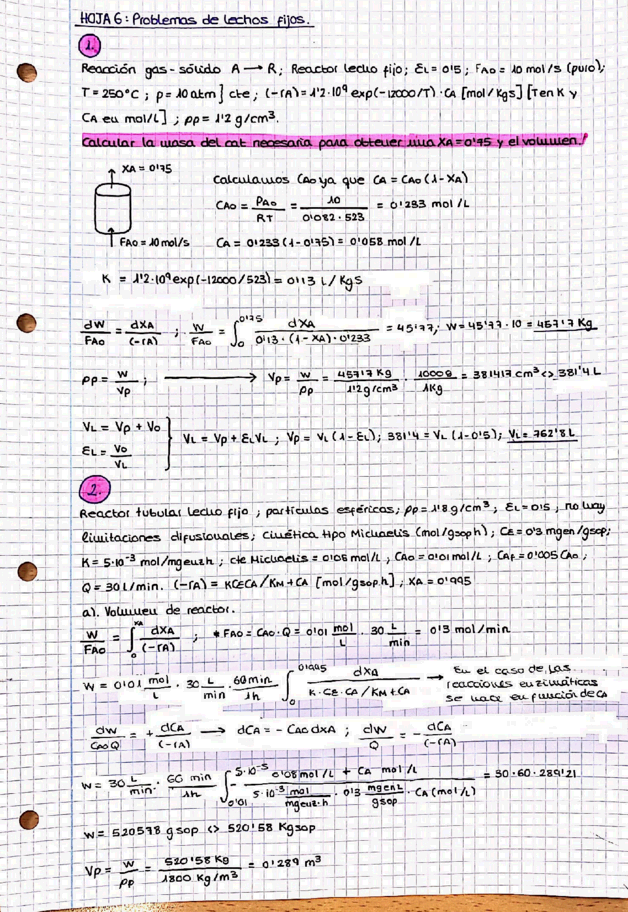 HOJA 6: Problemas de lechos fijos.
1.
Reacción gas-sólido A → R; Reactor lecho fijo; εL = 0'5; FA0 = 10 mol/s (puro);
T = 250°C; p = 10 atm] cte; (-rA) = 1'2·10⁹ exp(-12000/T)·CA [mol/kgs] [T en K y
CA en mol/L]; ρp = 1'2 g/cm³.
Calcular la masa del cat necesaria para obtener una XA = 0'75 y el volumen!
XA = 0'75
Calculamos CA0 ya que CA = CA0 (1-XA)
CA0 = PA0/RT = 10/0'082·523 = 0'233 mol/L
FA0 = 10 mol/s
CA = 0'233 (1-0'75) = 0'058 mol/L
K = 1'2·10⁹ exp(-12000/523) = 0'13 L/Kg s
dW/FA0 = dXA/(-rA) ; W/FA0 = ∫₀^0'75 dXA/0'13·(1-XA)·0'233 = 45'77; W = 45'77·10 = 457'7 Kg
ρp = W/Vp ; → Vp = W/ρp = 457'7 Kg/1'2g/cm³ · 1000g/1Kg = 381417 cm³ <> 381'4 L
VL = Vp + V0
εL = V0/VL
VL = Vp + εL VL ; Vp = VL (1-εL); 381'4 = VL (1-0'5); VL = 762'8 L
2.
Reactor tubular lecho fijo ; partículas esféricas; ρp = 1'8 g/cm³, εL = 0'5, no hay
limitaciones difusionales; cinética tipo Michaelis (mol/gsop h); CE = 0'3 mgen/gsop;
K = 5·10⁻³ mol/mgenzh ; cte Michaelis = 0'08 mol/L, CA0 = 0'01 mol/L ; CAf = 0'005 CA0 ;
Q = 30 L/min. (-rA) = KCECA/KM+CA [mol/gsop.h] ; XA = 0'995
a). Volumen de reactor.
W/FA0 = ∫₀^XA dXA/(-rA) ; * FA0 = CA0·Q = 0'01 mol/L · 30 L/min = 0'3 mol/min
W = 0'01 mol/L · 30 L/min · 60min/1h ∫₀^0'995 dXA/K·CE·CA/KM+CA →
En el caso de las
reacciones enzimáticas
se hace en función de CA
dW/CA0Q = + dCA/(-rA) → dCA = -CA0 dXA ; dW/Q = - dCA/(-rA)
W = 30 L/min · 60 min/1h ∫₀'₀₁^5·10⁻⁵ - 0'08 mol/L + CA mol/L / 5·10⁻³ mol/mgenz.h · 0'3 mgenz/gsop · CA (mol/L) = 30·60·289'21
W = 520578 gsop <> 520'58 Kgsop
Vp = W/ρp = 520'58 Kg/1800 Kg/m³ = 0'289 m³